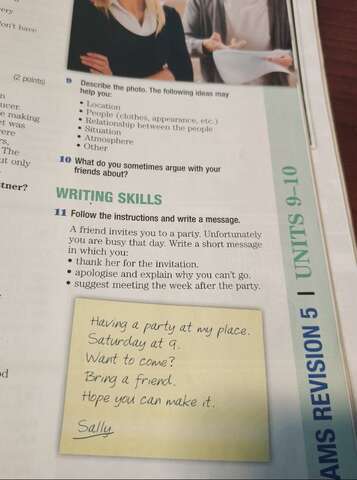 ery
on't have
(2 points)
n
ucer.
e making
et was
vere
rs,
The
ut only
tner?
9 Describe the photo. The following ideas may
help you:
• Location
• People (clothes, appearance, etc.)
• Relationship between the people
• Situation
• Atmosphere
• Other
10 What do you sometimes argue with your
friends about?
WRITING SKILLS
11 Follow the instructions and write a message.
A friend invites you to a party. Unfortunately
you are busy that day. Write a short message
in which you:
• thank her for the invitation.
• apologise and explain why you can't go.
• suggest meeting the week after the party.
Having a party at my place.
Saturday at 9.
Want to come?
Bring a friend.
Hope you can make it.
Sally
d
AMS REVISION 5 | UNITS 9–10